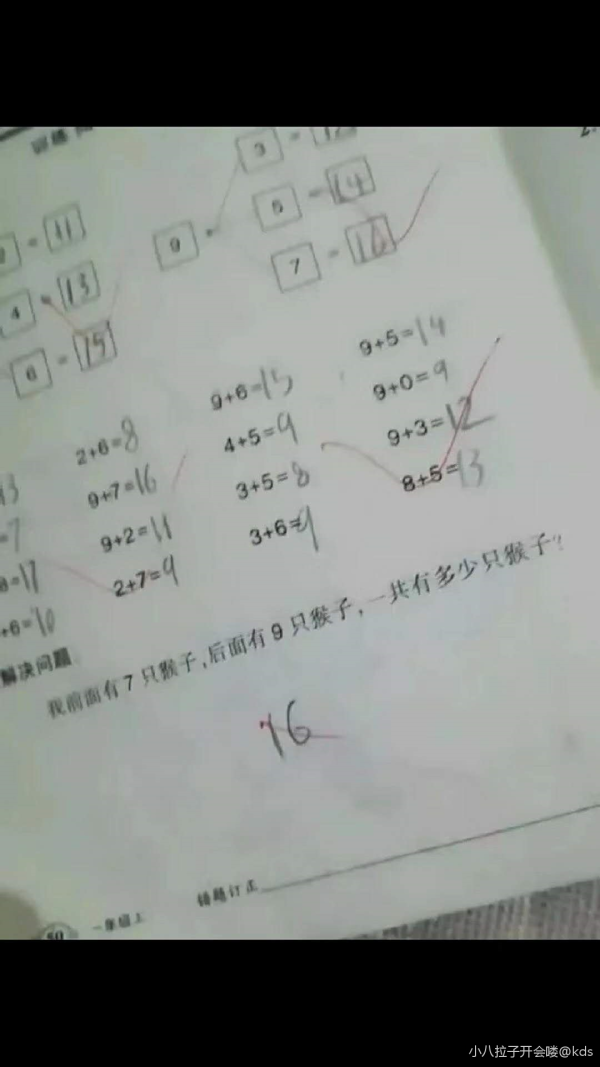 3 = 12
9 + 5 = 14
7 = 16
= 11
4 = 13
6 = 15
9+5=14
9+6=15 9+0=9
2+6=8 4+5=9 9+3=12
13 9+7=16 3+5=8 8+5=13
=7 9+2=11 3+6=9
8=17 2+7=9
+6=10
解决问题
我前面有7只猴子,后面有9只猴子,一共有多少只猴子?
16
错题订正
50 一年级上
小八拉子开会喽@kds